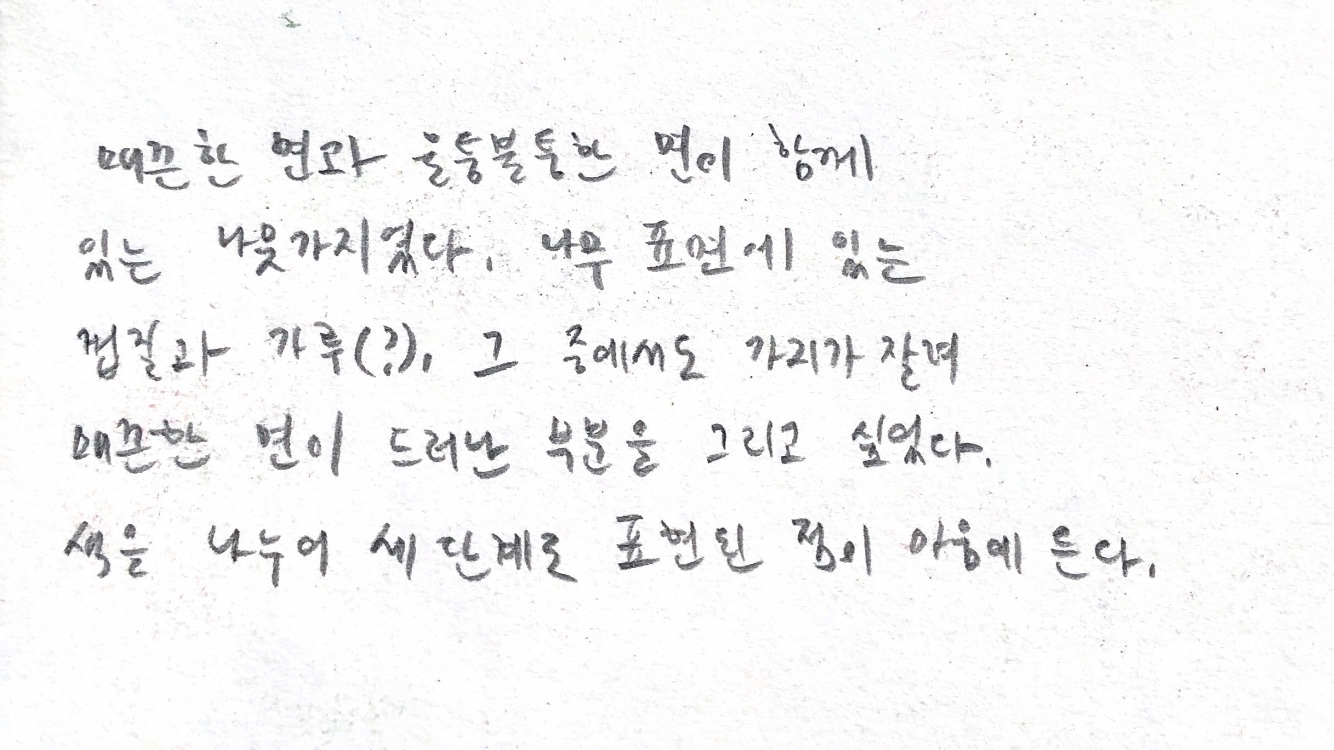 매끈한 면과 울퉁불퉁한 면이 함께
있는 나뭇가지였다. 나무 표면에 있는
껍질과 가루(?), 그 중에서도 가지가 잘려
매끈한 면이 드러난 부분을 그리고 싶었다.
색을 나누어 세 단계로 표현된 점이 마음에 든다.